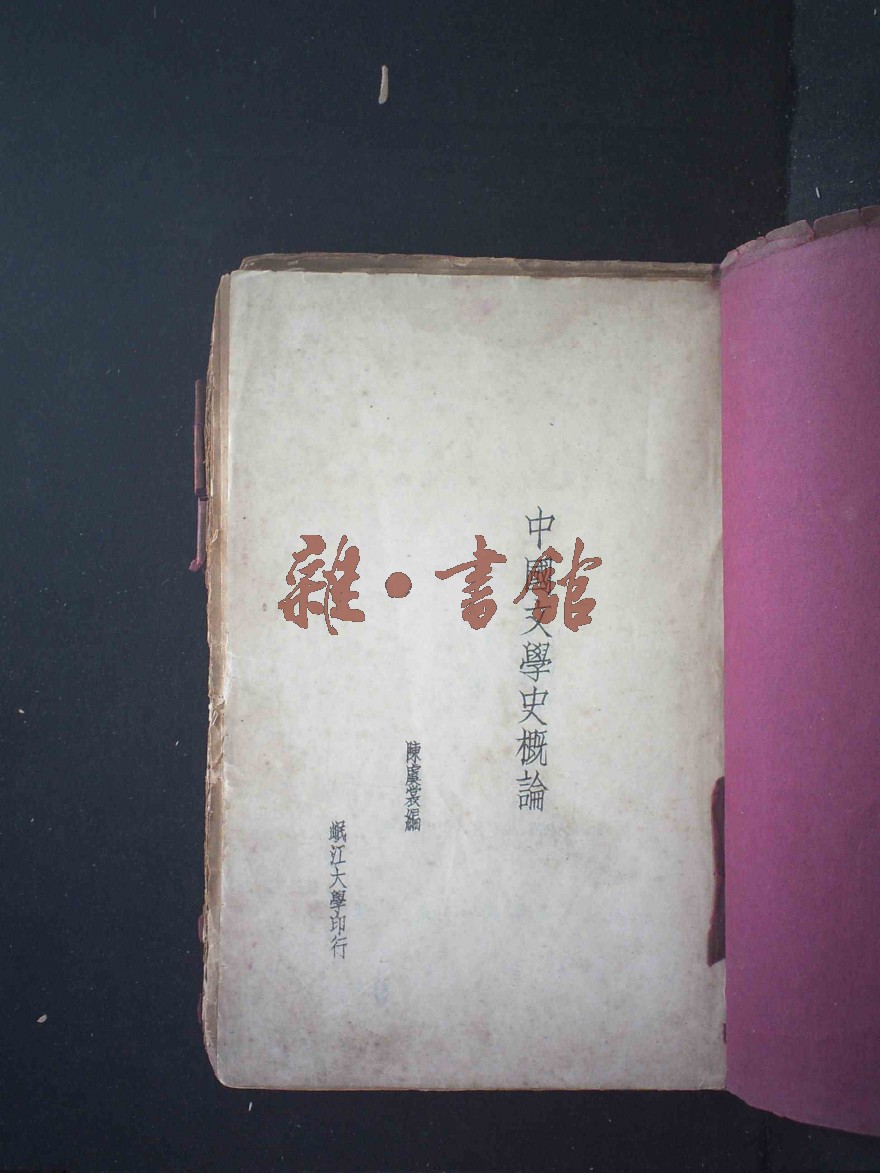 中國文學史概論
陳虞裳編
岷江大學印行
雜·書館